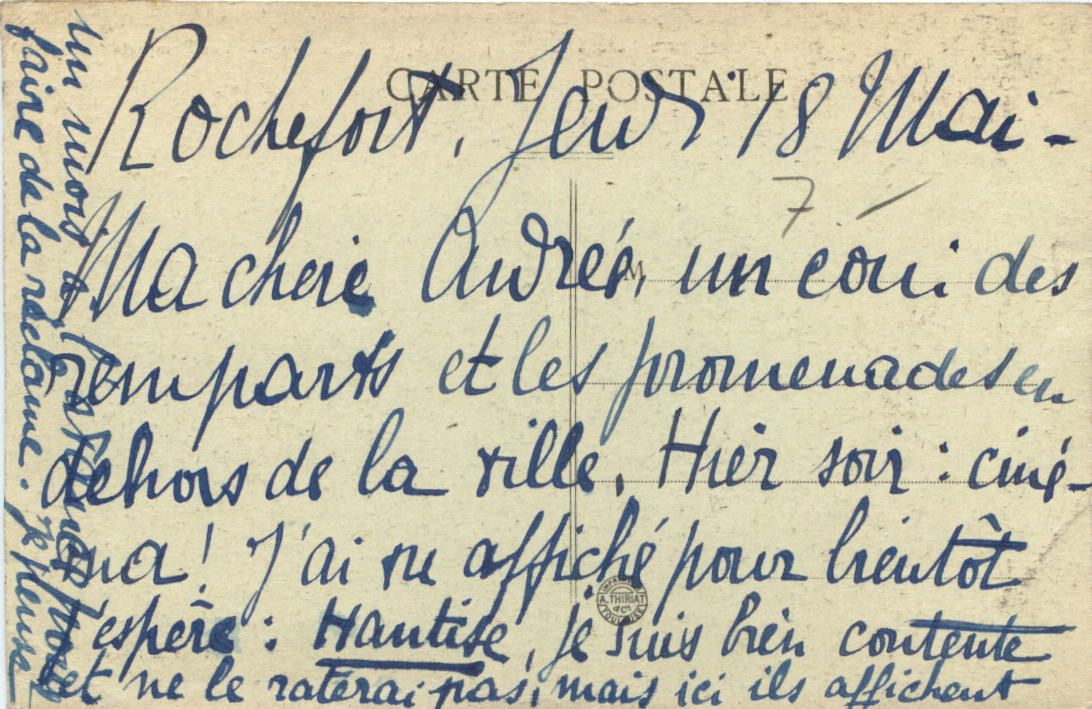 CARTE POSTALE
Rochefort, Jeudi 18 Mai -
7 -
Ma chérie Andrée, un coin des
remparts et les promenades en
dehors de la ville. Hier soir : ciné-
ma ! J'ai vu affiché pour bientôt
j'espère : Hantise, je suis bien contente
et ne le raterai pas, mais ici ils affichent
un mois à l'avance pour
faire de la réclame. je pense
M
IMPRIMERIE
A. THIRIAT
& Cie
TOULOUSE